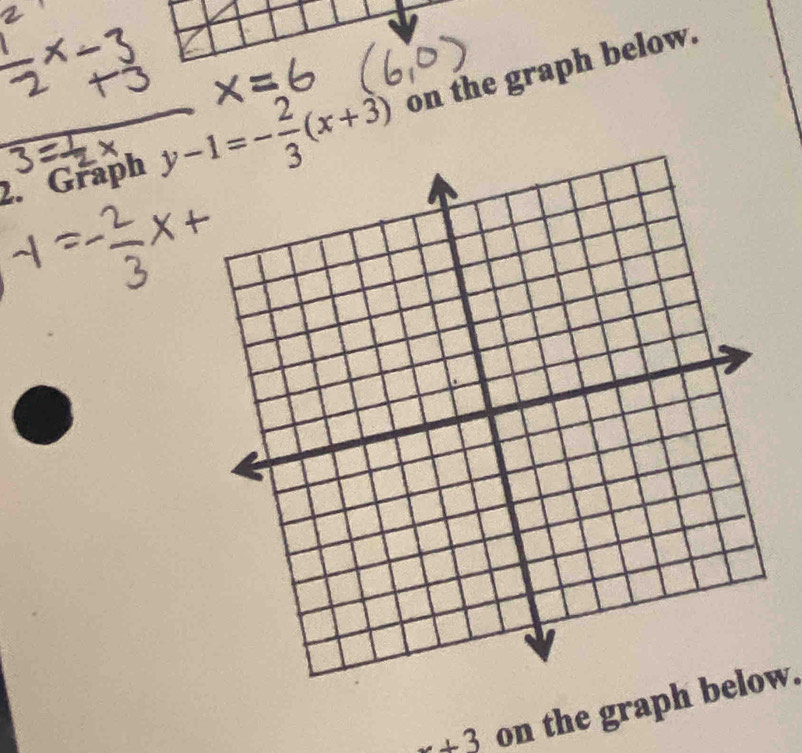 2
1/2 x - 3
+3
x = 6 (6,0)
3 = 1/2 x
2. Graph y - 1 = -2/3 (x + 3) on the graph below.
-1 = -2/3 x +
+ 3 on the graph below.